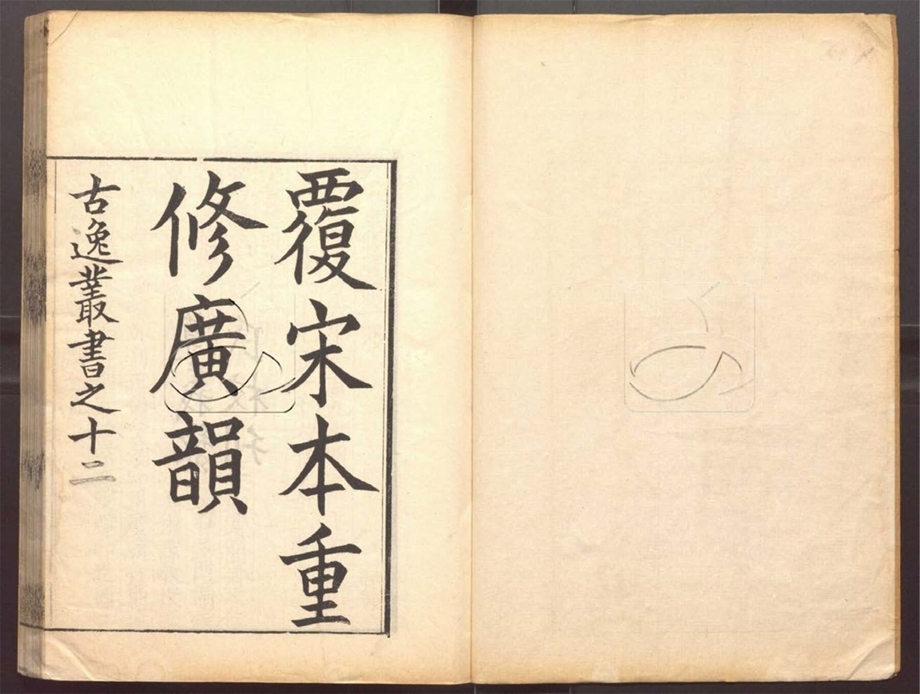 覆宋本重
修廣韻
古逸叢書之十二